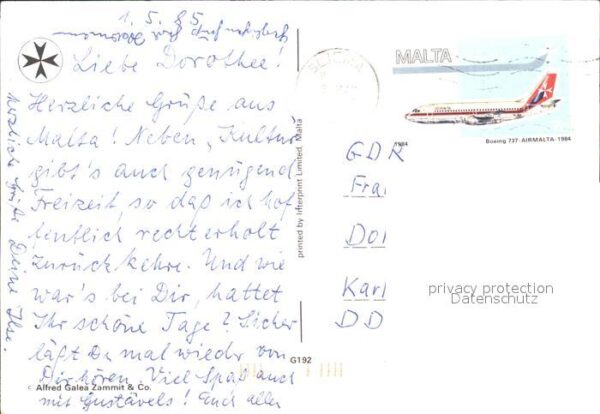 1.5.85
Liebe Dorothee!
Herzliche Grüße aus
Malta! Neben "Kultur"
gibt's auch genügend
Freizeit, so daß ich hof-
fentlich recht erholt
zurückkehre. Und wie
war's bei Dir, hattet
Ihr schöne Tage? Sicher
läßt Du mal wieder von
Dir hören. Viel Spaß auch
mit Gustävels! Euch allen
herzliche Grüße Deine Ilse.
SLIEMA
MALTA
1984
Boeing 737-AIRMALTA-1984
GDR
Frau
Dor
Karl
DD
privacy protection
Datenschutz
printed by Interprint Limited, Malta
G192
© Alfred Galea Zammit & Co.